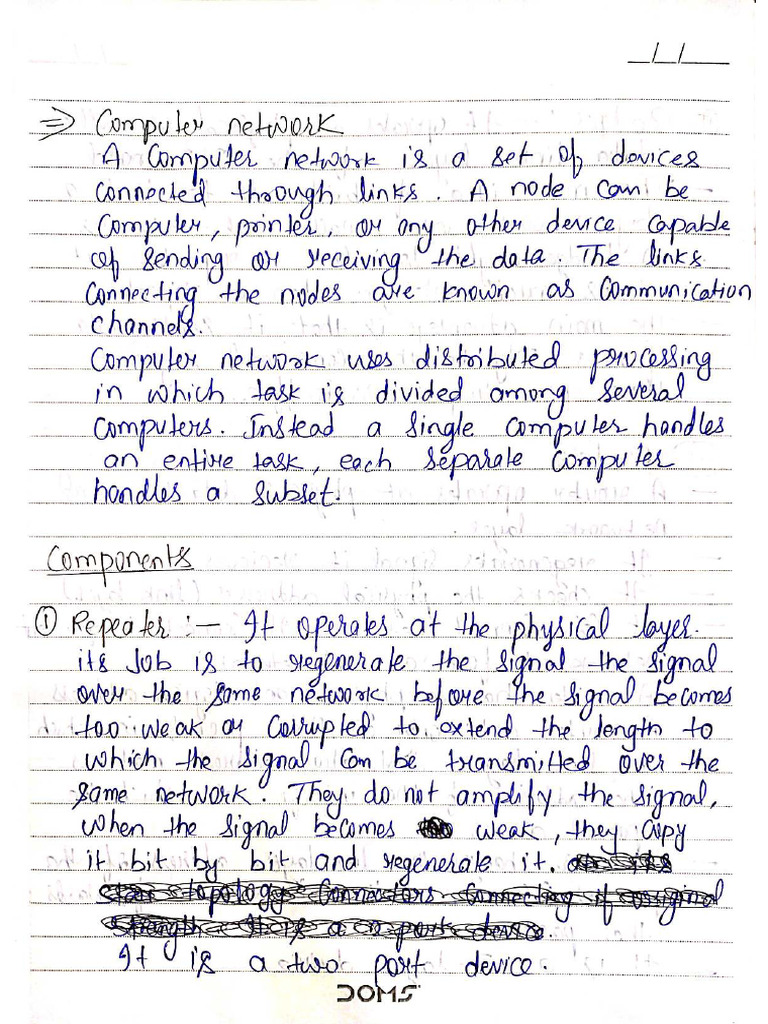 __/__/____
⇒ Computer network
A Computer network is a set of devices
connected through links. A node can be
computer, printer, or any other device capable
of sending or receiving the data. The links
connecting the nodes are known as communication
channels.
Computer network uses distributed processing
in which task is divided among several
computers. Instead a single computer handles
an entire task, each separate computer
handles a subset.
Components
① Repeater :- It operates at the physical layer.
its Job is to regenerate the signal the signal
over the same network before the signal becomes
too weak or corrupted to extend the length to
which the signal can be transmitted over the
same network. They do not amplify the signal,
when the signal becomes weak, they copy
it bit by bit and regenerate it.
It is a two port device.
DOMS